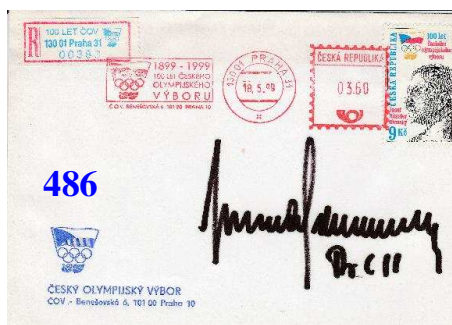 R
100 LET ČOV
130 01 Praha 31
1899 - 1999
100 LET ČESKÉHO
OLYMPIJSKÉHO
VÝBORU
ČOV. Benešovská 6, 101 00 PRAHA 10
130 01 PRAHA 31
18.5.99
ČESKÁ REPUBLIKA
03.60
ČESKÁ REPUBLIKA
100 let
9 Kč
486
ČESKÝ OLYMPIJSKÝ VÝBOR
ČOV - Benešovská 6, 101 00 Praha 10